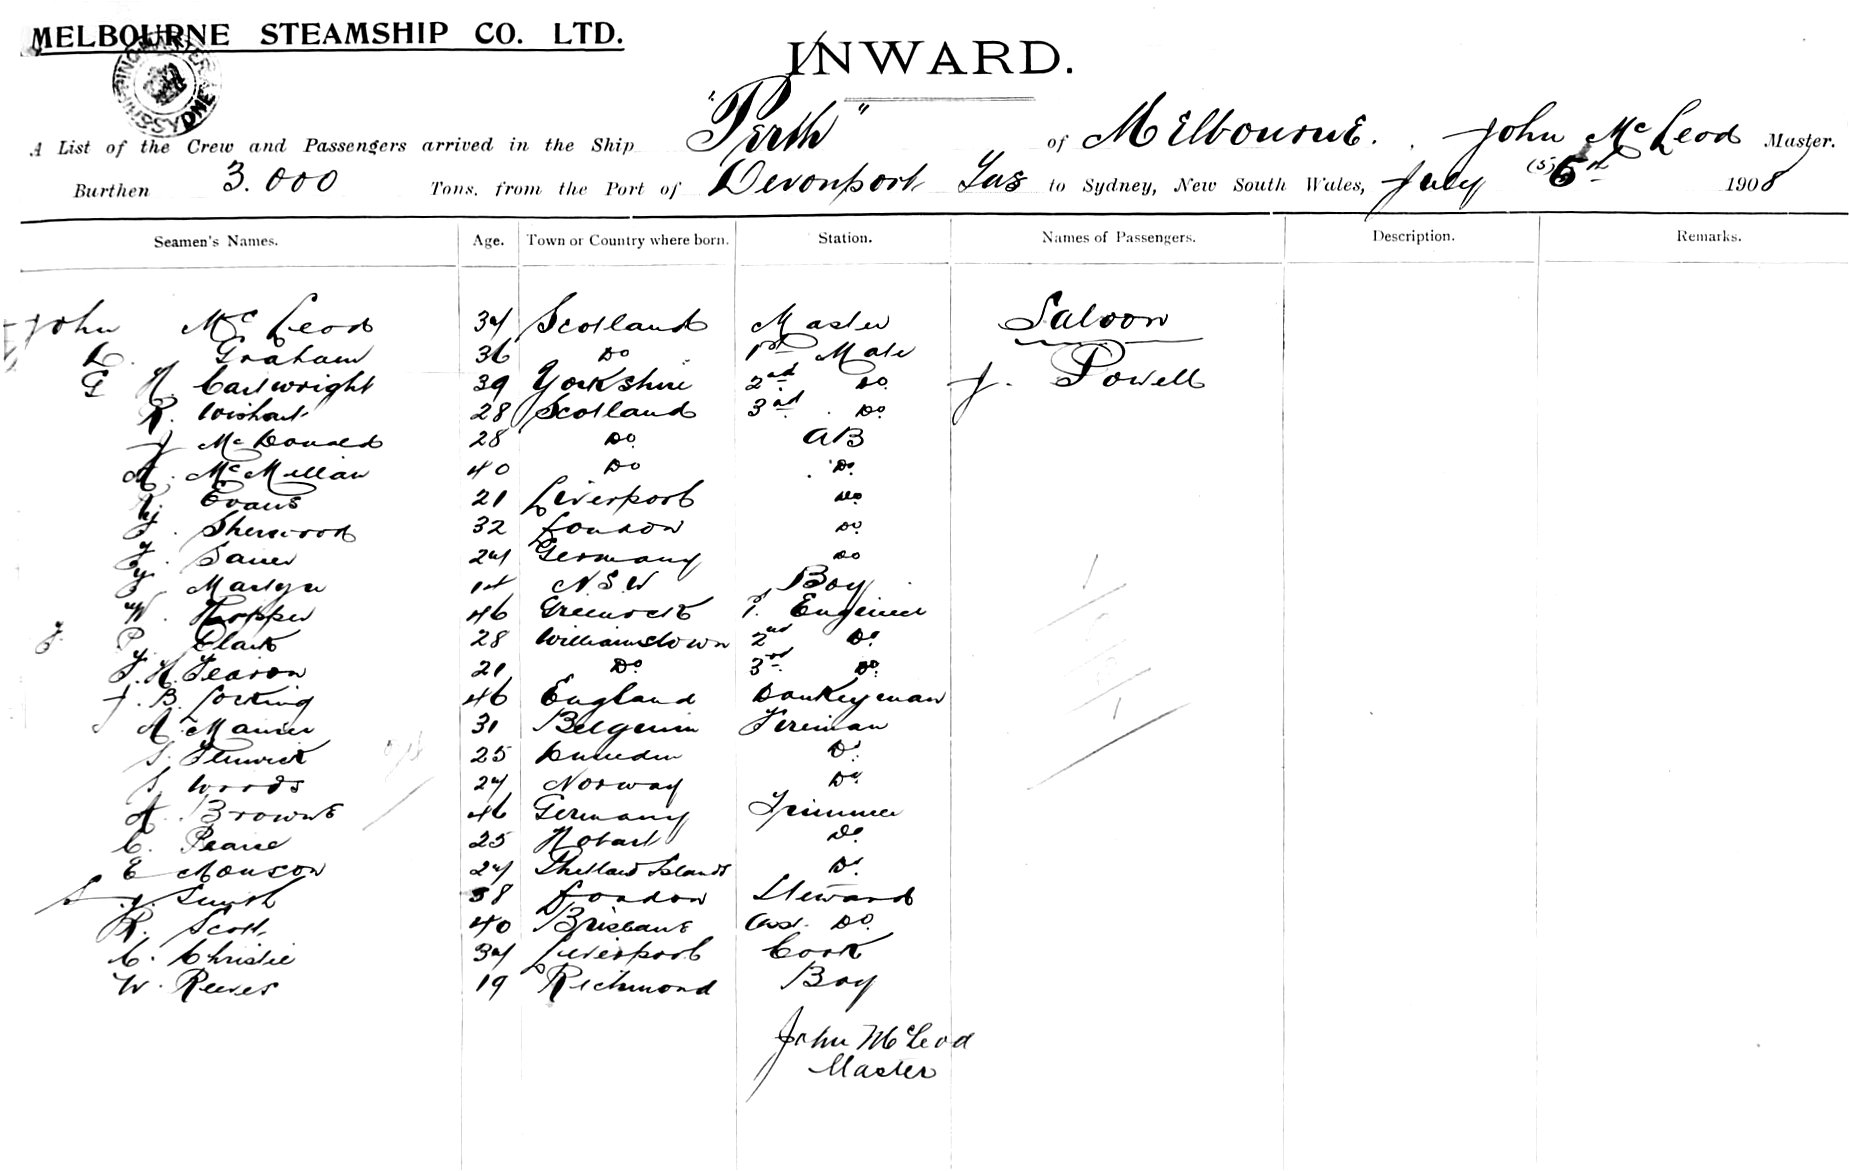 MELBOURNE STEAMSHIP CO. LTD.
INWARD.
A List of the Crew and Passengers arrived in the Ship "Perth" of Melbourne. John McLeod Master.
Burthen 3.000 Tons, from the Port of Devonport Tas to Sydney, New South Wales, July (5) 6th 1908
Seamen's Names. Age. Town or Country where born. Station. Names of Passengers. Description. Remarks.
John McLeod 34 Scotland Master Saloon
D. Graham 36 Do 1st Mate
G H. Cartwright 39 Yorkshire 2nd Do. J. Powell
R. Wishart 28 Scotland 3rd Do.
J McDonald 28 Do. AB
A. McMillan 40 Do Do.
Evans 21 Liverpool Do
Sherwood 32 London Do
Sauer 24 Germany Do
Martyn 14 N.S.W Boy
W. Hopper 46 Greenock 1st Engineer
J. P. Clark 28 Williamstown 2nd Do
F. H. Fearon 21 Do. 3rd Do.
J. B. Locking 46 England Donkeyman
A. Manier 31 Belgium Fireman
S. Fenwick 25 Dunedin Do
S. Woods 24 Norway Do.
A. Browne 46 Germany Trimmer
C. Pearce 25 Hobart Do.
E Monson 24 Shetland Islands Do
S. J. Smith 38 London Steward
R. Scott 40 Brisbane Asst. Do.
C. Christie 34 Liverpool Cook
W. Reeves 19 Richmond Boy
John McLeod
Master